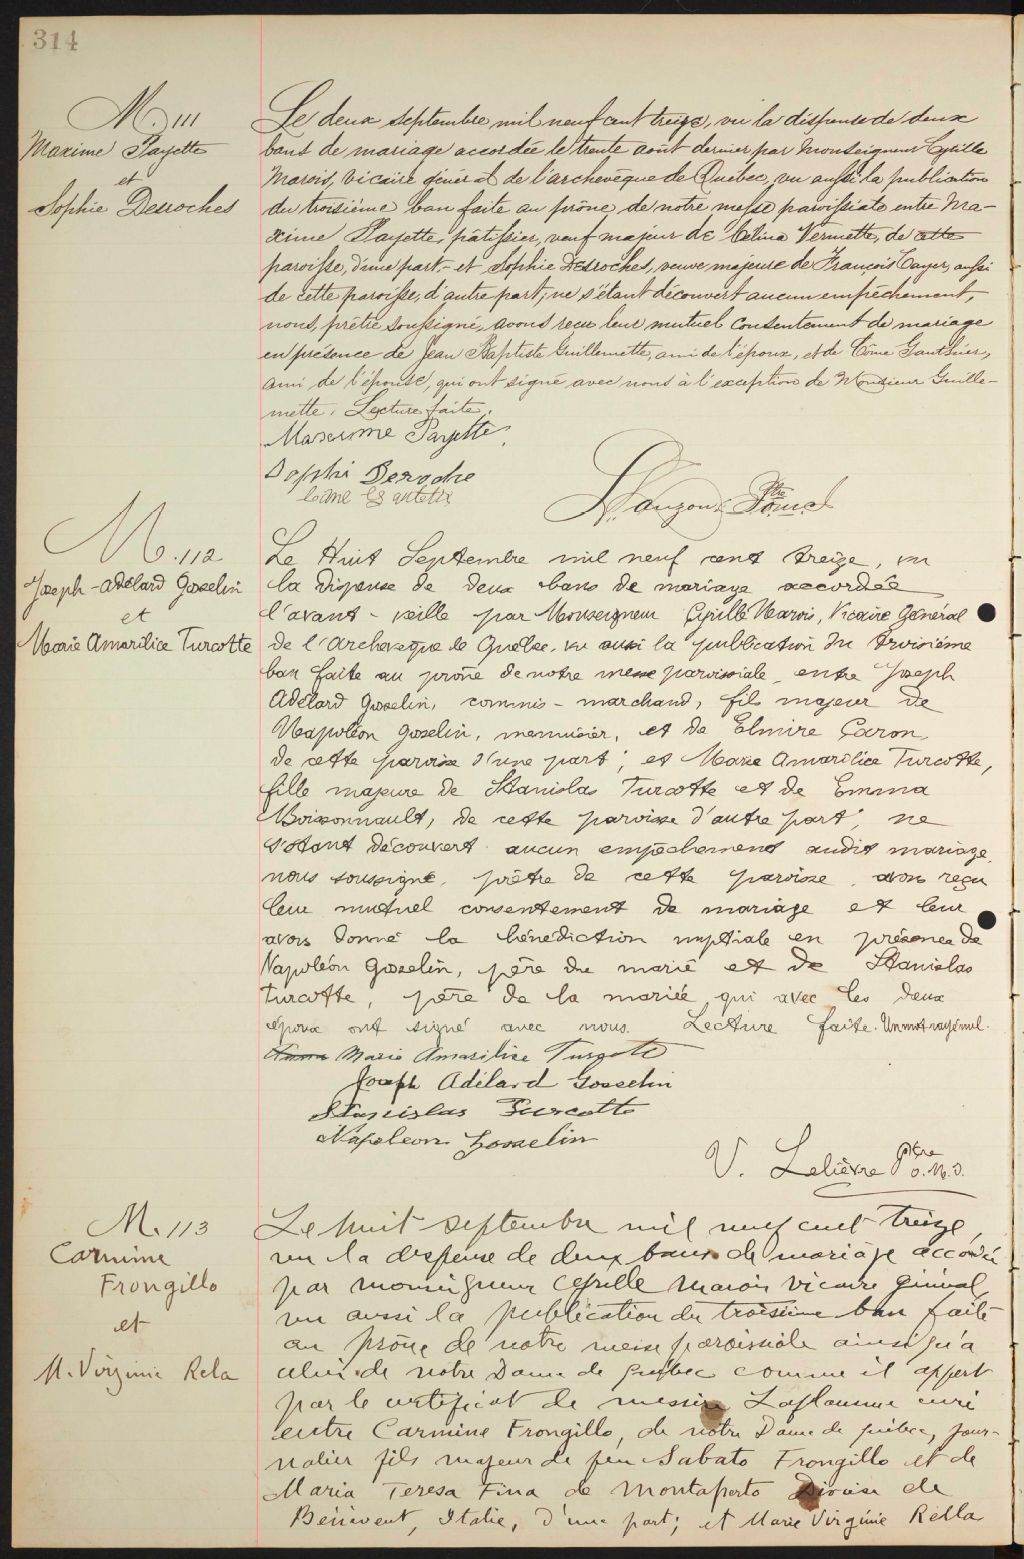 314
M. 111
Maxime Payette
et
Sophie Desroches
Le deux septembre mil neuf cent treize, vu la dispense de deux
bans de mariage accordée le trente août dernier par Monseigneur Cyrille
Marois, vicaire général de l'archevêque de Québec, vu aussi la publication
du troisième ban faite au prône de notre messe paroissiale entre Ma-
xime Payette, pâtissier, veuf majeur de Celina Vermette, de cette
paroisse, d'une part, et Sophie Desroches, veuve majeure de François Cayer, aussi
de cette paroisse, d'autre part; ne s'étant découvert aucun empêchement,
nous, prêtre soussigné, avons reçu leur mutuel consentement de mariage
en présence de Jean Baptiste Guillemette, ami de l'époux, et de Côme Gauthier,
ami de l'épouse, qui ont signé avec nous à l'exception de Monsieur Guille-
mette. Lecture faite.
Maxime Payette
Sophi Deroche
M. 112
Joseph-Adélard Gosselin
et
Marie Amarilice Turcotte
Le Huit Septembre mil neuf cent treize, vu
la dispense de deux bans de mariage accordée
l'avant-veille par Monseigneur Cyrille Marois, Vicaire Général
de l'Archevêque de Québec, vu aussi la publication du troisième
ban faite au prône de notre messe paroissiale, entre Joseph
Adélard Gosselin, commis-marchand, fils majeur de
Napoléon Gosselin, menuisier, et de Elmire Caron,
de cette paroisse d'une part; et Marie Amarilice Turcotte,
fille majeure de Stanislas Turcotte et de Emma
Boissonnault, de cette paroisse d'autre part; ne
s'étant découvert aucun empêchement audit mariage,
nous soussigné, prêtre de cette paroisse, avons reçu
leur mutuel consentement de mariage et leur
avons donné la bénédiction nuptiale en présence de
Napoléon Gosselin, père du marié et de Stanislas
Turcotte, père de la mariée, qui avec les deux
époux ont signé avec nous. Lecture faite. Un mot rayé nul.
Marie Amarilice Turcotte
Joseph Adélard Gosselin
Stanislas Turcotte
Napoleon Gosselin
V. Lelièvre Ptre
O.M.I.
M. 113
Carmine
Frongillo
et
M. Virginie Rela
Le huit septembre mil neuf cent treize,
vu la dispense de deux bans de mariage accordée
par monseigneur Cyrille Marois vicaire général,
vu aussi la publication du troisième ban faite
au prône de notre messe paroissiale ainsi qu'à
celui de notre Dame de Québec comme il appert
par le certificat de messire Laflamme curé
entre Carmine Frongillo, de notre Dame de Québec, jour-
nalier fils majeur de feu Sabato Frongillo et de
Maria Teresa Fina de Montaperto Diocèse de
Bénévent, Italie, d'une part; et Marie Virginie Rella